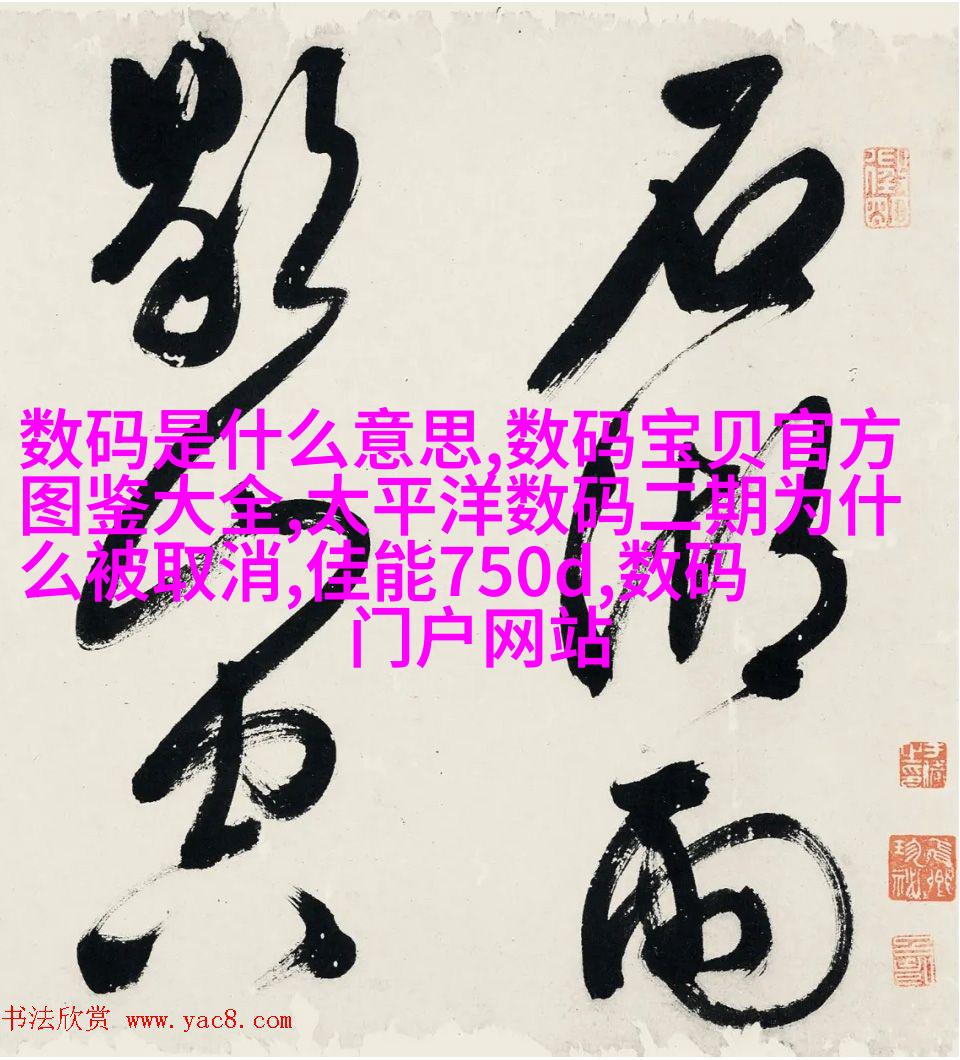 石湖雨
歇山空
数码是什么意思,数码宝贝官方
图鉴大全,太平洋数码二期为什
么被取消,佳能750d,数码
门户网站
书法欣赏 www.yac8.com